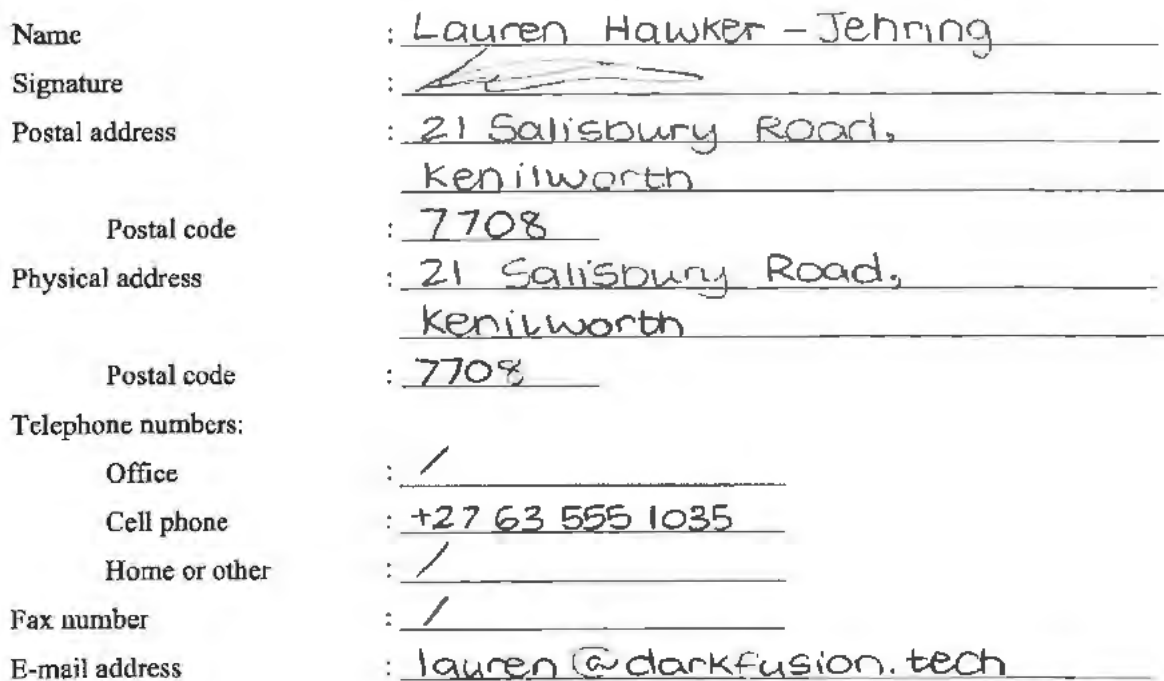 Name : Lauren Hawker - Jehring
Signature :
Postal address : 21 Salisbury Road,
Kenilworth
Postal code : 7708
Physical address : 21 Salisbury Road,
Kenilworth
Postal code : 7708
Telephone numbers:
Office : /
Cell phone : +27 63 555 1035
Home or other : /
Fax number : /
E-mail address : lauren@darkfusion.tech